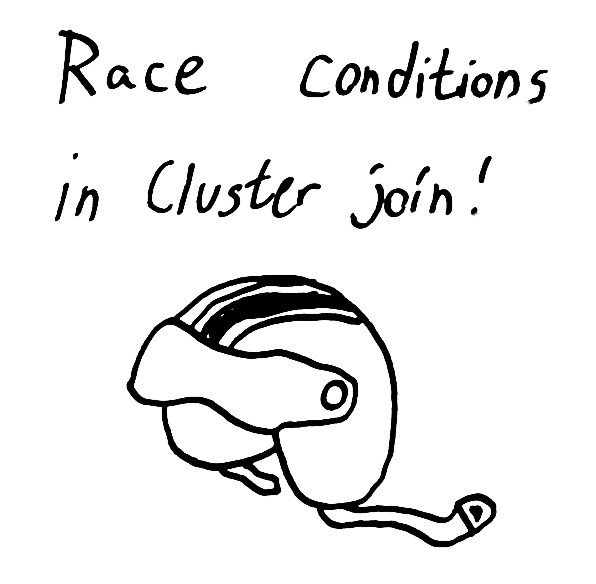 Race conditions
in Cluster join!